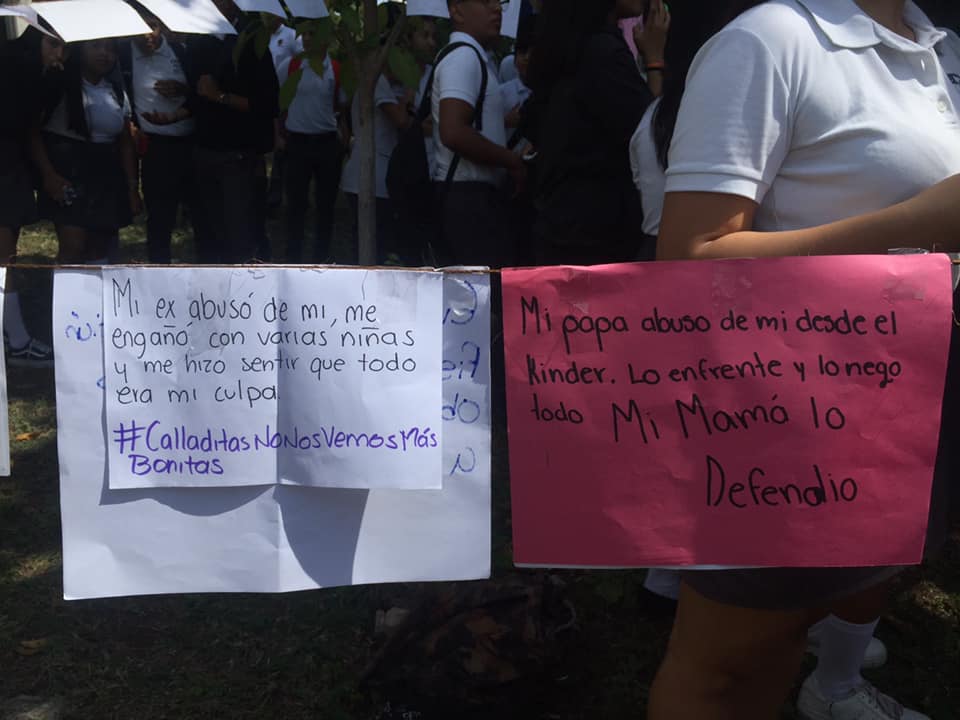 Mi ex abusó de mi, me
engañó con varias niñas
y me hizo sentir que todo
era mi culpa.
#CalladitasNoNosVemosMás
Bonitas
Mi papa abuso de mi desde el
Kinder. Lo enfrente y lo nego
todo Mi Mamá lo
Defendio